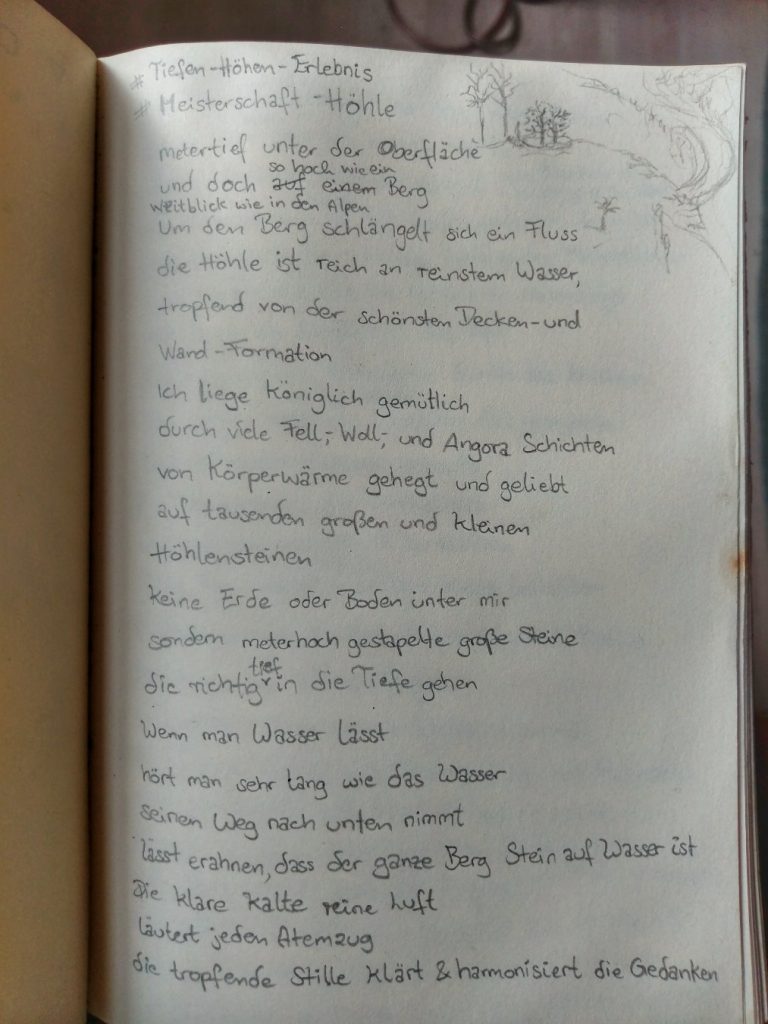 # Tiefen-Höhen-Erlebnis
# Meisterschaft-Höhle
metertief unter der Oberfläche
so hoch wie ein
und doch auf einem Berg
weitblick wie in den Alpen
Um den Berg schlängelt sich ein Fluss
die Höhle ist reich an reinstem Wasser,
tropfend von der schönsten Decken-und
Wand-Formation
Ich liege Königlich gemütlich
durch viele Fell-, Woll-, und Angora Schichten
von Körperwärme gehegt und geliebt
auf tausenden großen und kleinen
Höhlensteinen
keine Erde oder Boden unter mir
sondern meterhoch gestapelte große Steine
tief
die richtig in die Tiefe gehen
Wenn man Wasser lässt
hört man sehr lang wie das Wasser
seinen Weg nach unten nimmt
lässt erahnen, dass der ganze Berg Stein auf Wasser ist
Die klare kalte reine Luft
läutert jeden Atemzug
die tropfende Stille klärt & harmonisiert die Gedanken